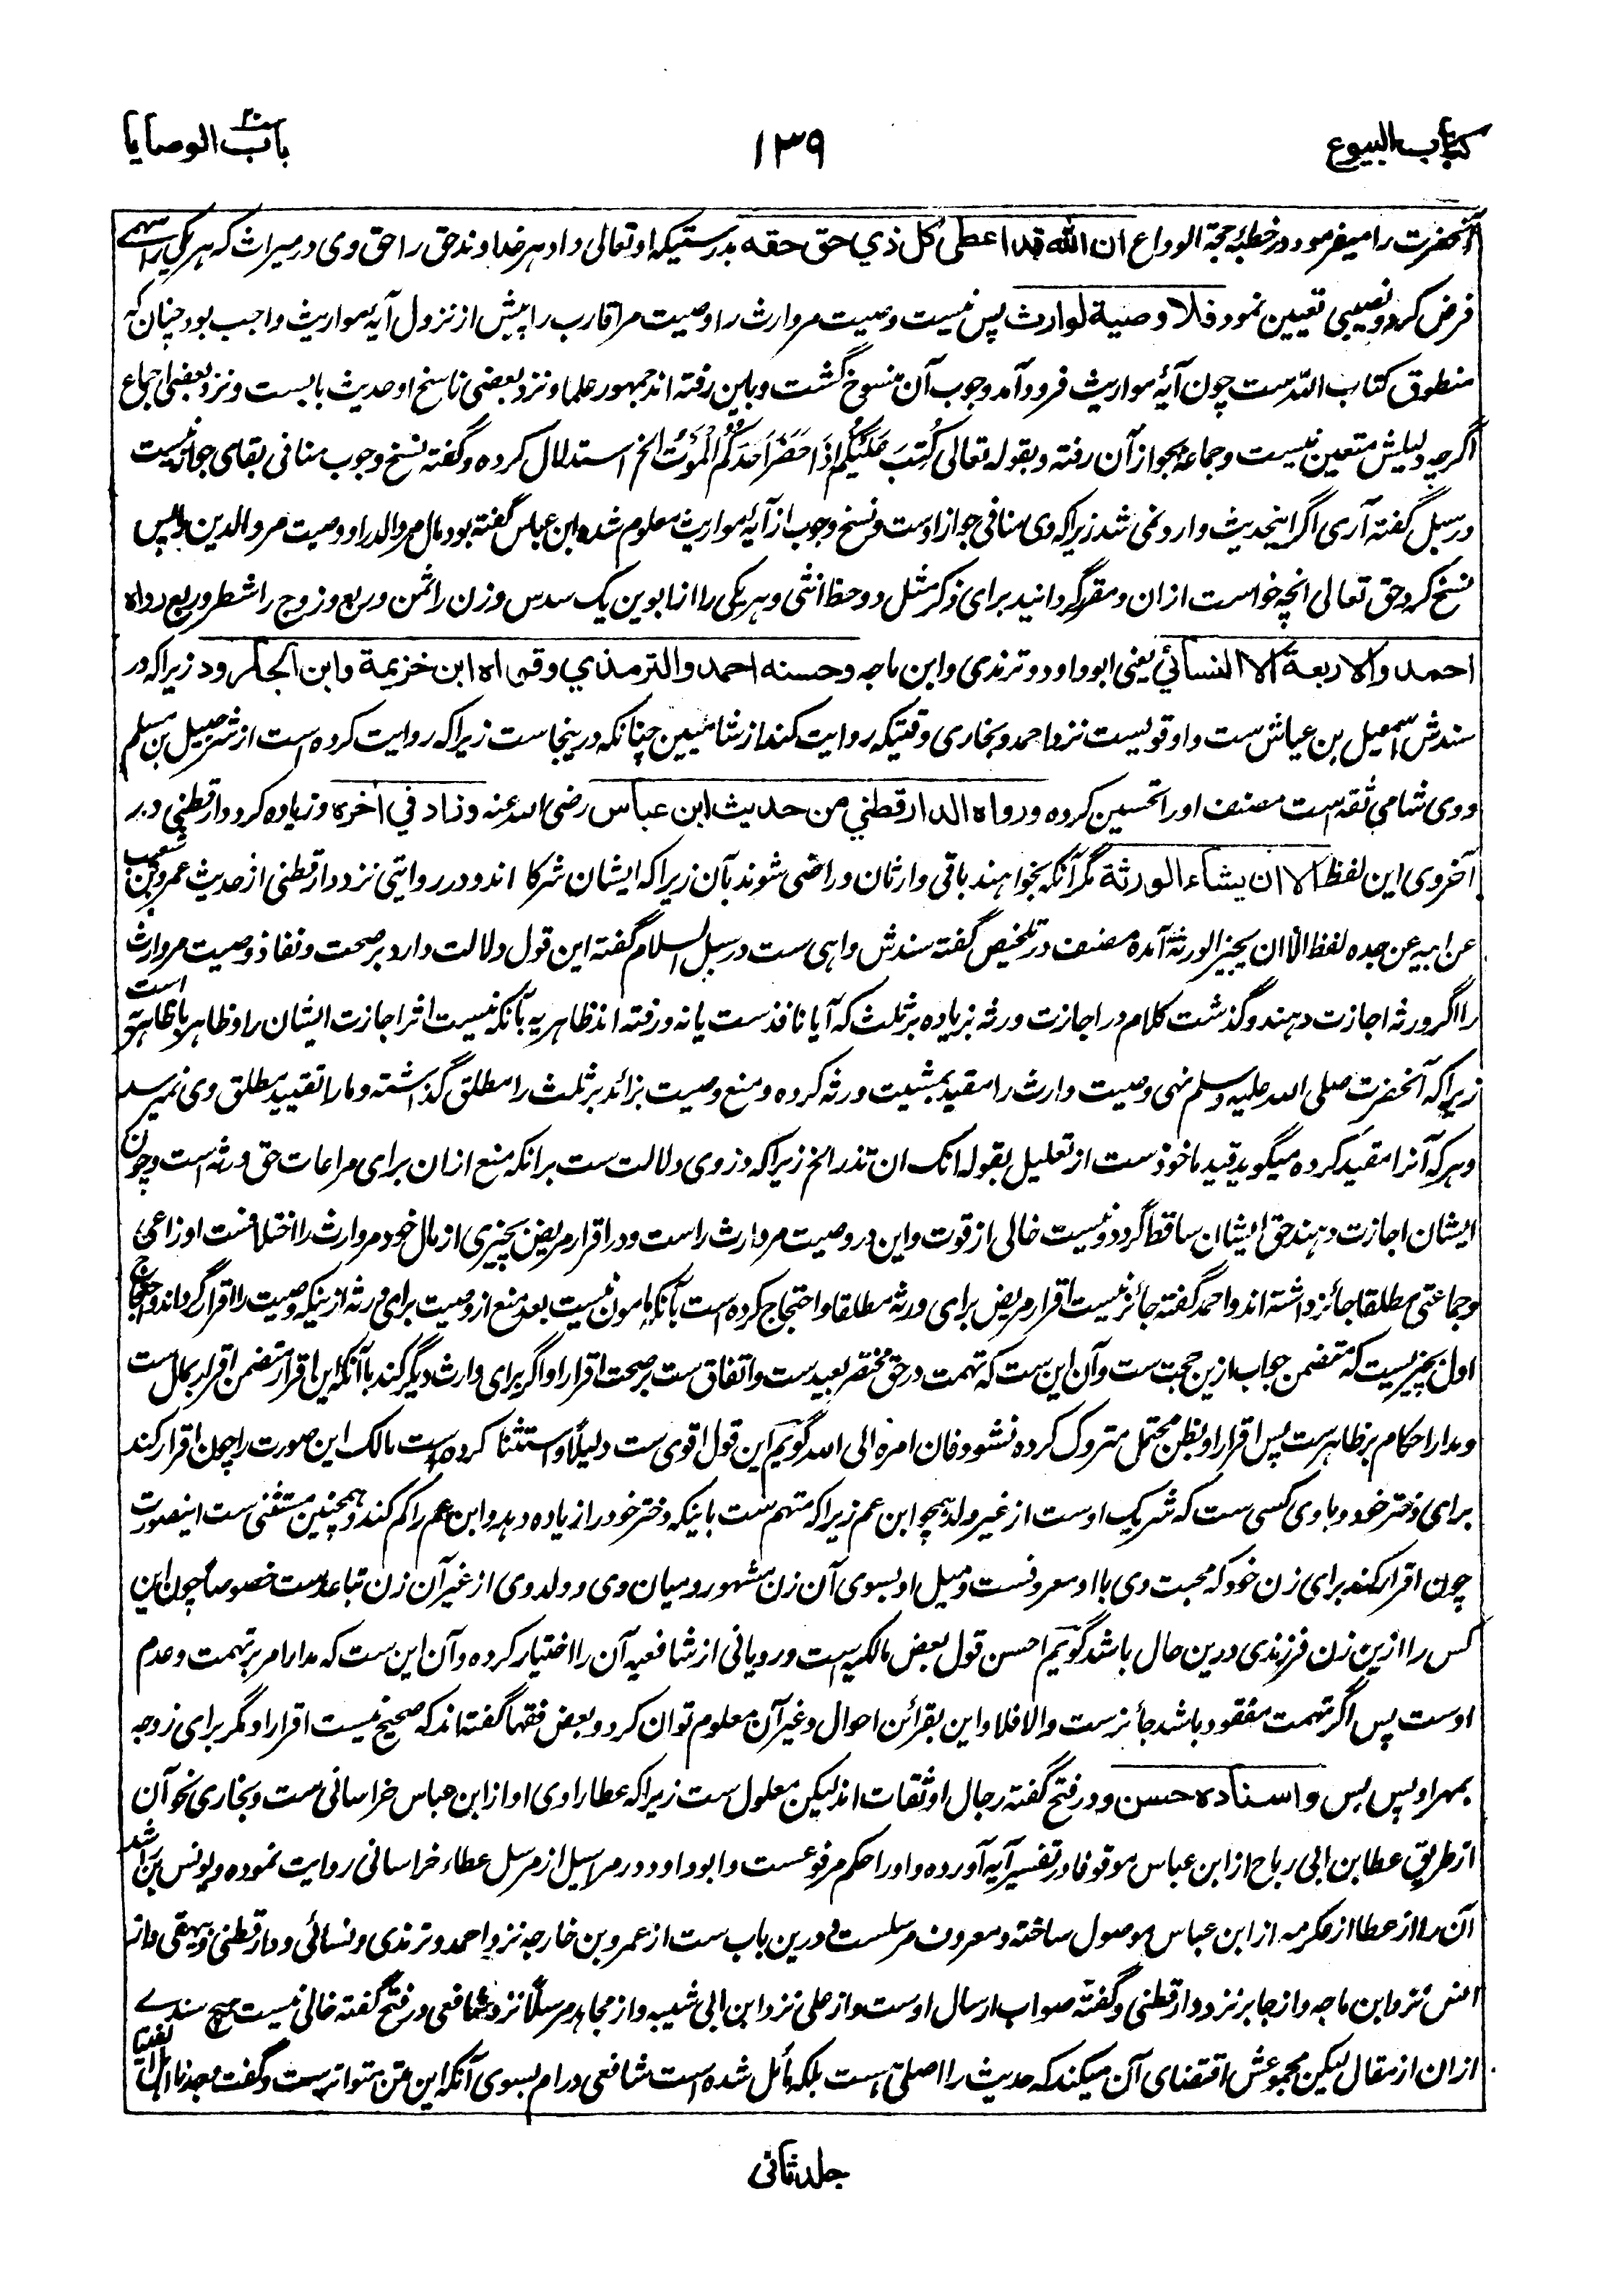 کتاب البیوع
۱۳۹
باب الوصایا
آنحضرت را میفرمود در خطبۂ حجة الوداع ان الله قد اعطی کل ذي حق حقه بدرستیکہ او تعالی داد ہر خداوند حق را حق وی در میراث کہ ہر یکی را سہمے
فرض کرد و نصیبی تعیین نمود فلا وصیة لوارث پس نیست وصیت مر وارث را و وصیت مر اقارب را پیش از نزول آیۂ مواریث واجب بود چنان کہ
منطوق کتاب اللہ ست چون آیۂ مواریث فرود آمد وجوب آن منسوخ گشت و باین رفتہ اند جمہور علما و نزد بعضی ناسخ او حدیث بابست و نزد بعضی اجماع
اگرچہ دلیلش متعین نیست و جماعۂ بجواز آن رفتہ و بقولہ تعالی کُتِبَ عَلَیْکُمْ اِذَا حَضَرَ اَحَدَکُمُ الْمَوْتُ الخ استدلال کردہ و گفتہ نسخ وجوب منافی بقای جواز نیست
در سبل گفتہ آری اگر اینحدیث وارد نمی شد زیرا کہ وی منافی جواز اوست و نسخ وجوب از آیۂ مواریث معلوم شدہ ابن عباس گفتہ بود مال مر والد را و وصیت مر والدین را پس
نسخ کرد حق تعالی انچہ خواست ازان و مقرر گردانید برای ذکر مثل دو حظ انثی و ہر یکی را از ابوین یک سدس و زن را ثمن و ربع و زوج را شطر و ربع رواہ
احمد والاربعة الا النسائي یعنی ابو داود و ترمذی و ابن ماجہ وحسنه احمد والترمذي وقواه ابن خزیمة وابن الجارود زیرا کہ در
سندش اسمعیل بن عیاش ست و او قویست نزد احمد و بخاری وقتیکہ روایت کند از شامیین چنانکہ درینجاست زیرا کہ روایت کردہ است از شرحبیل بن مسلم
و وی شامی ثقہ است مصنف او را تحسین کردہ ورواه الدارقطني من حدیث ابن عباس رضی اللہ عنہ وزاد في اخره و زیادہ کرد دارقطنی در
آخر وی این لفظ الا ان یشاء الورثة مگر آنکہ بخواہند باقی وارثان و راضی شوند بآن زیرا کہ ایشان شرکا اند و در روایتی نزد دارقطنی از حدیث عمرو بن شعیب
عن ابیہ عن جدہ لفظ الا ان یجیز الورثة آمدہ مصنف در تلخیص گفتہ سندش واہی ست در سبل السلام گفتہ این قول دلالت دارد بر صحت و نفاذ وصیت مر وارث
را اگر ورثہ اجازت دہند و گذشت کلام در اجازت ورثہ بزیادہ بر ثلث کہ آیا نافذ ست یا نہ و رفتہ اند ظاہریہ بآنکہ نیست اثر اجازت ایشان را و ظاہر با ظاہریہ است
زیرا کہ آنحضرت صلی اللہ علیہ وسلم نہی وصیت وارث را مقید بمشیت ورثہ کردہ و منع وصیت بزائد بر ثلث را مطلق گذاشتہ و ما را تقیید مطلق وی نمیرسد
و ہر کہ آنرا مقید کردہ میگوید قید ماخوذ ست از تعلیل بقولہ انک ان تذر الخ زیرا کہ در وی دلالت ست بر آنکہ منع ازان برای مراعات حق ورثہ است و چون
ایشان اجازت دہند حق ایشان ساقط گردد و نیست خالی از قوت و این در وصیت مر وارث راست و در اقرار مریض بچیزی از مال خود مر وارث را اختلافست اوزاعی
و جماعتی مطلقا جائز داشتہ اند و احمد گفتہ جائز نیست اقرار مریض برای ورثہ مطلقا و احتجاج کردہ است بآنکہ مامون نیست بعد منع از وصیت برای ورثہ ازینکہ وصیت را اقرار گرداند و احتجاج
اول بچیزیست کہ متضمن جواب ازین حجت ست و آن این ست کہ تہمت در حق محتضر بعید ست و اتفاق ست بر صحت اقرار او اگر برای وارث دیگر کند با آنکہ این اقرار متضمن اقرار بمال ست
و مدار احکام بر ظاہر ست پس اقرار او بظن محتمل متروک کردہ نشود فان امرہ الی اللہ گویم این قول اقوی ست دلیلاً و استثنا کردہ است مالک این صورت را چون اقرار کند
برای دختر خود و با وی کسی ست کہ شریک اوست از غیر ولد ہمچو ابن عم زیرا کہ متہم ست باینکہ دختر خود را زیادہ دہد و ابن عم را کم کند و ہمچنین مستثنی ست اینصورت
چون اقرار کند برای زن خود کہ محبت وی با او معروفست و میل او بسوی آن زن مشہور و میان وی و ولد وی از غیر آن زن تباعد ست خصوصاً چون این
کس را ازین زن فرزندی درین حال باشد گویم احسن قول بعض مالکیہ است و رویانی از شافعیہ آن را اختیار کردہ و آن این ست کہ مدار امر بر تہمت و عدم
اوست پس اگر تہمت مفقود باشد جائز ست والا فلا و این بقرائن احوال و غیر آن معلوم توان کرد و بعض فقہا گفتہ اند کہ صحیح نیست اقرار او مگر برای زوجہ
بمہر او پس بس واسناده حسن و در فتح گفتہ رجال او ثقات اند لیکن معلول ست زیرا کہ عطا راوی او از ابن عباس خراسانی ست و بخاری نحو آن
از طریق عطا بن ابی رباح از ابن عباس موقوفا در تفسیر آیہ آوردہ و او را حکم مرفوعست و ابو داود در مراسیل از مرسل عطاء خراسانی روایت نمودہ و یونس بن راشد
آن را از عطا از عکرمہ از ابن عباس موصول ساختہ و معروف مرسلست و درین باب ست از عمرو بن خارجہ نزد احمد و ترمذی و نسائی و دارقطنی و بیہقی و از
انس نزد ابن ماجہ و از جابر نزد دارقطنی و گفتہ صواب ارسال اوست و از علی نزد ابن ابی شیبہ و از مجاہد مرسلاً نزد شافعی در فتح گفتہ خالی نیست ہیچ سندے
ازان از مقال لیکن مجموعش اقتضای آن میکند کہ حدیث را اصلی ہست بلکہ مائل شدہ است شافعی در ام بسوی آنکہ این متن متواتر ست و گفت وجدنا اہل الفتیا
جلد ثانی